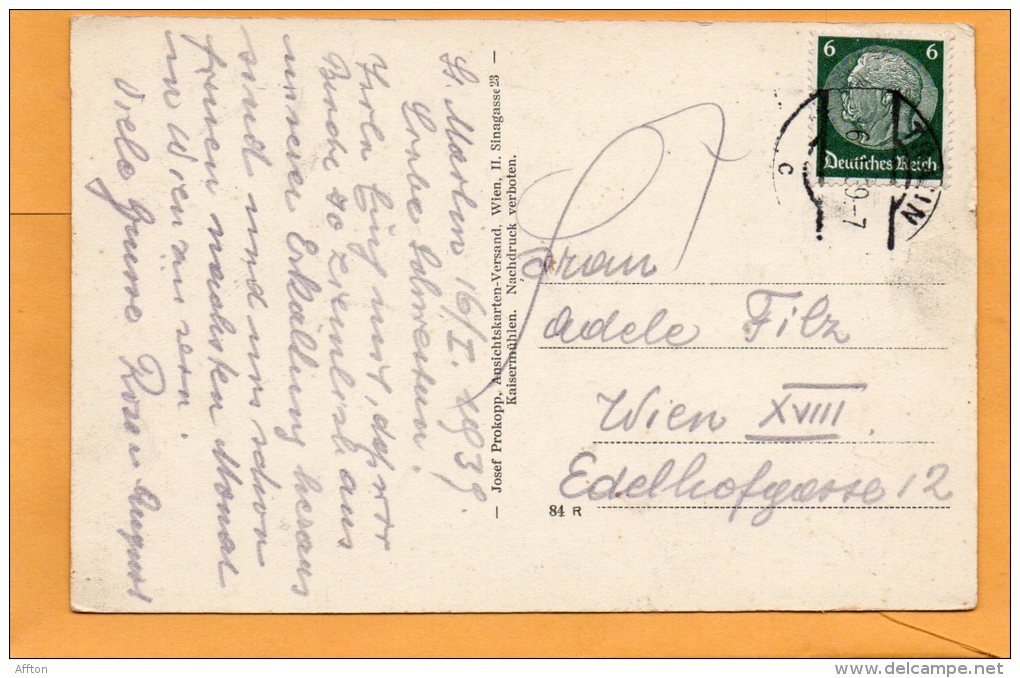 St. Martin 16/I. 1939.
Liebe Schwester!
Teile Euch mit, daß wir
Beide so ziemlich aus
unserer Erkältung heraus
sind und um schon
nächsten Monat
in Wien sein.
Viele Grüsse August
Josef Prokopp, Ansichtskarten-Versand. Wien, II. Sinagasse 23
Kaisermühlen. Nachdruck verboten.
84 R
6 6
Deutsches Reich
Frau
Adele Filz
Wien XVIII.
Edelhofgasse 12
Affton
www.delcampe.net